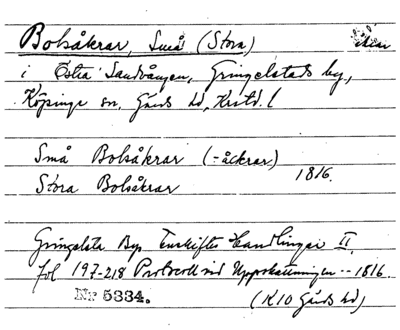 Bolsåkrar, Små (Stora) åkrar
i Östra Sandvången, Gringelstads by,
Köpinge sn, Gärds hd, Krstd. l
Små Bolsåkrar (-åckrar)
Stora Bolsåkrar 1816.
Gringelsta Bys Enskiftes Handlingar II
fol 197-218 Protocoll vid Uppskattningen -- 1816.
Nr 5334. (K10 Gärds hd)